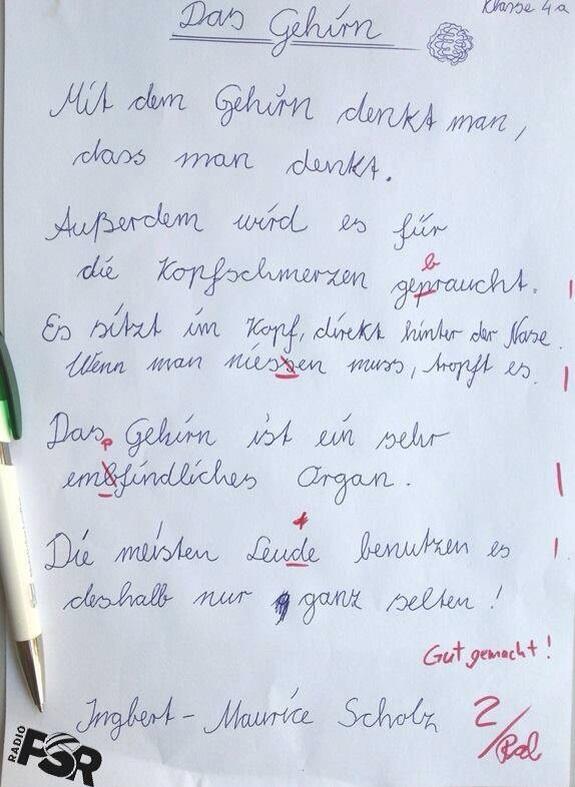 Klasse 4a
Das Gehirn
Mit dem Gehirn denkt man,
dass man denkt.
Außerdem wird es für
b
die Kopfschmerzen gepraucht.
Es sitzt im Kopf, direkt hinter der Nase.
Wenn man niessen muss, tropft es.
Das Gehirn ist ein sehr
p
embfindliches Organ.
t
Die meisten Leude benutzen es
deshalb nur ganz selten!
Gut gemacht!
Ingbert-Maurice Scholz 2
RADIO FSR